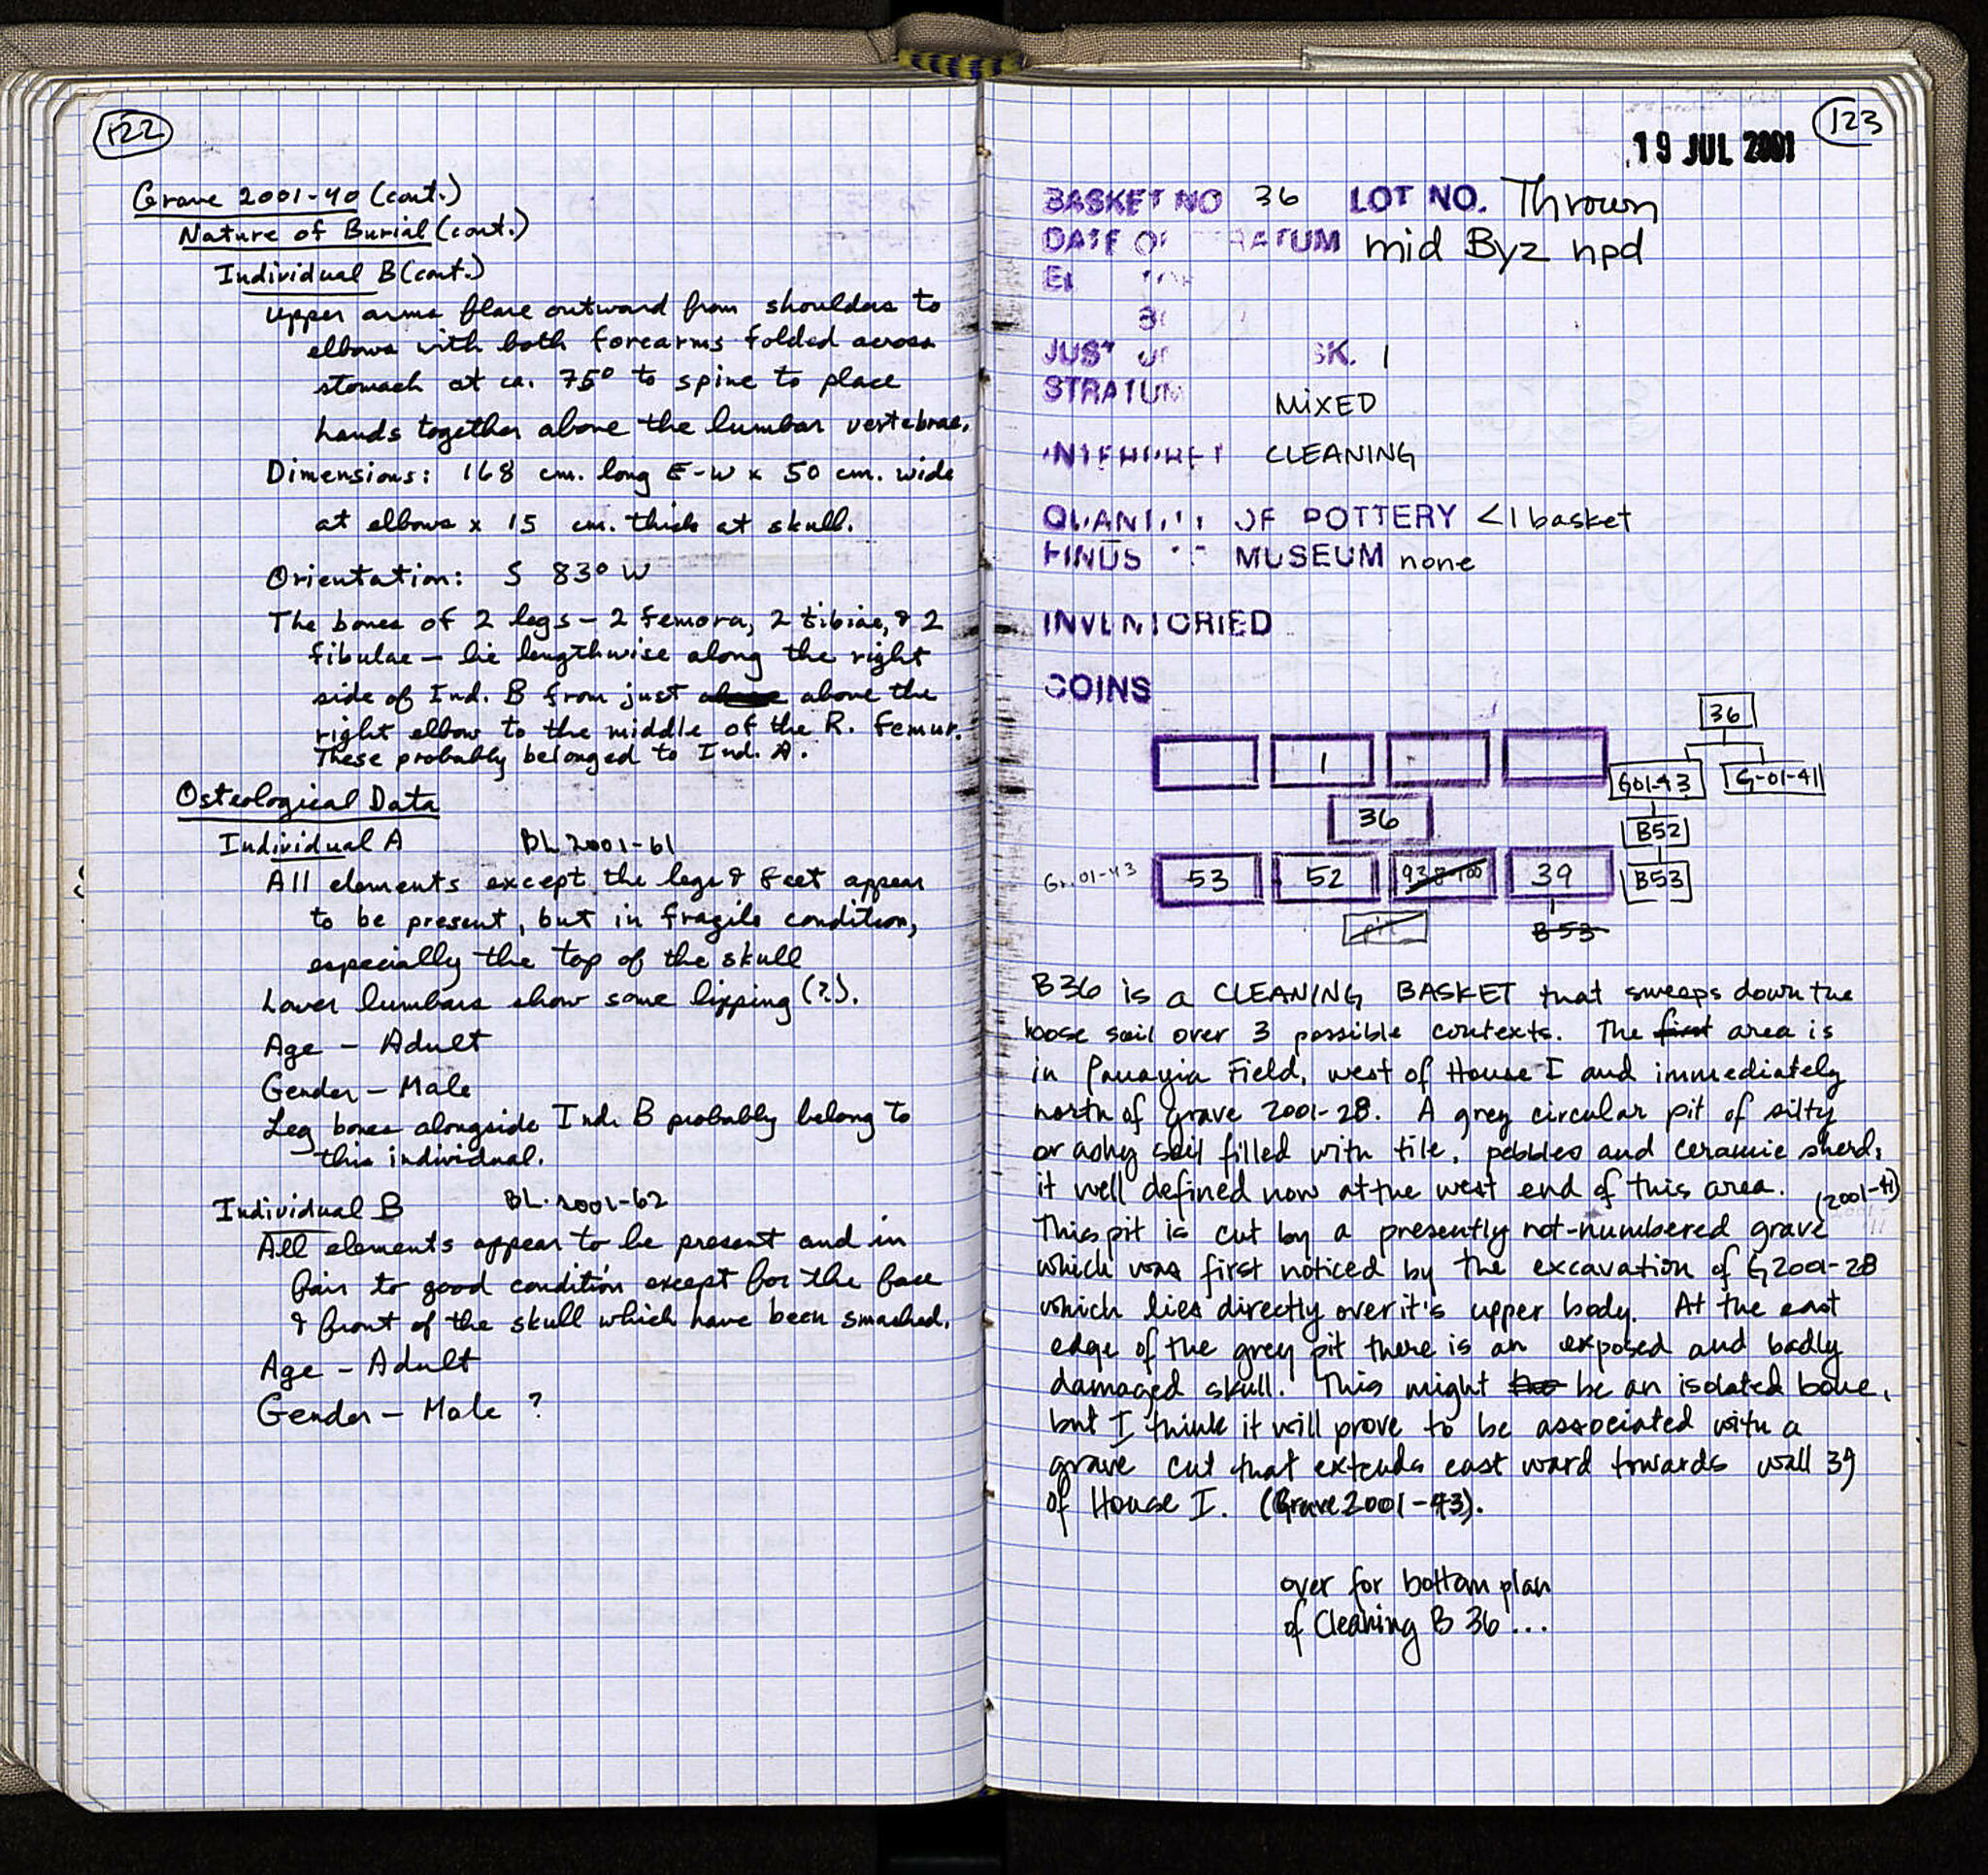 122
Grave 2001-40 (cont.)
Nature of Burial (cont.)
Individual B (cont.)
Upper arms flare outward from shoulders to
elbows with both forearms folded across
stomach at ca. 75° to spine to place
hands together above the lumbar vertebrae.
Dimensions: 168 cm. long E-W x 50 cm. wide
at elbows x 15 cm. thick at skull.
Orientation: S 83° W
The bones of 2 legs - 2 femora, 2 tibiae, & 2
fibulae - lie lengthwise along the right
side of Ind. B from just above the
right elbow to the middle of the R. femur.
These probably belonged to Ind. A.
Osteological Data
Individual A BL 2001-61
All elements except the legs & feet appear
to be present, but in fragile condition,
especially the top of the skull
Lower lumbars show some lipping (?).
Age - Adult
Gender - Male
Leg bones alongside Ind. B probably belong to
this individual.
Individual B BL. 2001-62
All elements appear to be present and in
fair to good condition except for the face
& front of the skull which have been smashed.
Age - Adult
Gender - Male ?
123
19 JUL 2001
BASKET NO 36 LOT NO. Thrown
DATE OF STRATUM mid Byz npd
JUST 1
STRATUM MIXED
CLEANING
QUANTITY OF POTTERY <1 basket
FINDS MUSEUM none
INVENTORIED
COINS
36
1
G01-43 G-01-41
36
B52
Gr. 01-43 53 52 39 B53
B53
B36 is a CLEANING BASKET that sweeps down the
loose soil over 3 possible contexts. The first area is
in Panayia Field, west of House I and immediately
north of grave 2001-28. A grey circular pit of silty
or ashy soil filled with tile, pebbles and ceramic sherds
it well defined now at the west end of this area.
(2001-41)
This pit is cut by a presently not-numbered grave
which was first noticed by the excavation of G2001-28
which lies directly over it's upper body. At the east
edge of the grey pit there is an exposed and badly
damaged skull. This might be an isolated bone,
but I think it will prove to be associated with a
grave cut that extends east ward towards wall 39
of House I. (Grave 2001-43).
over for bottom plan
of Cleaning B 36 ...